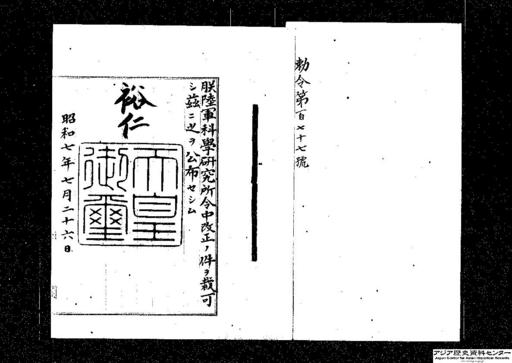 勅令第百七十七號
朕陸軍科學硏究所令中改正ノ件ヲ裁可
シ茲ニ之ヲ公布セシム
裕仁
天皇
御璽
昭和七年七月二十六日
アジア歴史資料センター
Japan Center for Asian Historical Records